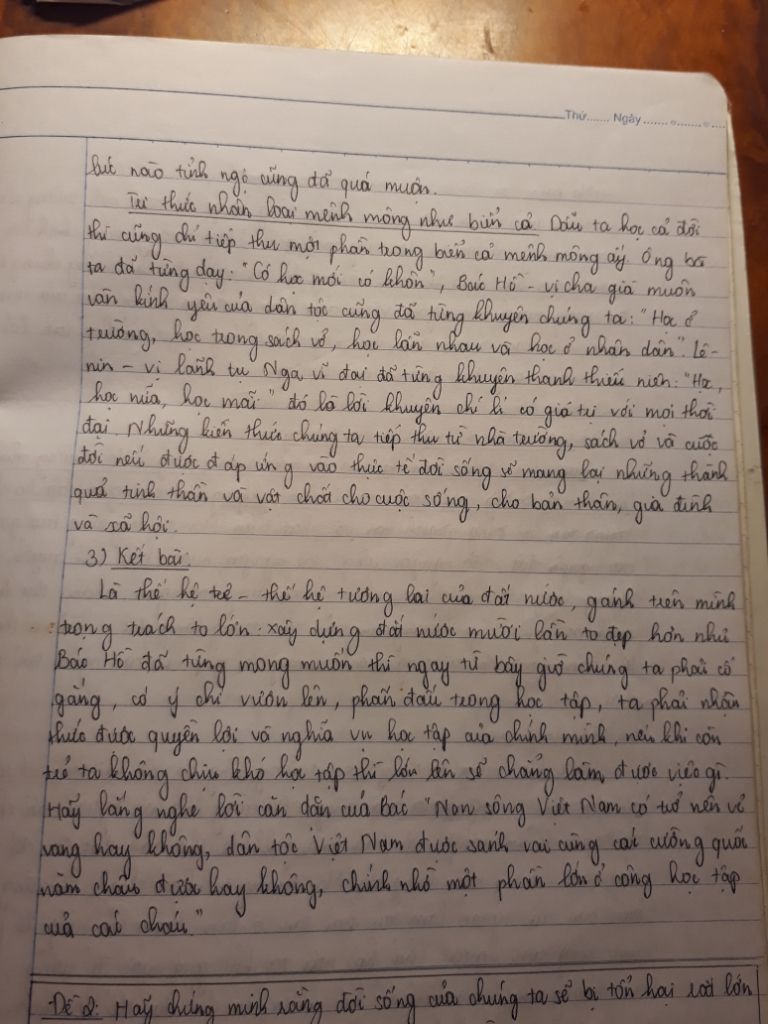 Thứ....... Ngày.......
lúc nào tỉnh ngộ cũng đã quá muộn.
Tri thức nhân loại mênh mông như biển cả Dẫu ta học cả đời
thì cũng chỉ tiếp thu một phần trong biển cả mênh mông ấy. Ông bà
ta đã từng dạy: "Có học mới có khôn", Bác Hồ - vị cha già muôn
vàn kính yêu của dân tộc cũng đã từng khuyên chúng ta: "Học ở
trường, học trong sách vở, học lẫn nhau và học ở nhân dân". Lê-
nin - vị lãnh tụ Nga vĩ đại đã từng khuyên thanh thiếu niên: "Học,
học nữa, học mãi" đó là lời khuyên chí lí có giá trị với mọi thời
đại. Những kiến thức chúng ta tiếp thu từ nhà trường, sách vở và cuộc
đời nếu được đáp ứng vào thực tế đời sống sẽ mang lại những thành
quả tinh thần và vật chất cho cuộc sống, cho bản thân, gia đình
và xã hội.
3) Kết bài:
Là thế hệ trẻ - thế hệ tương lai của đất nước, gánh trên mình
trọng trách to lớn: xây dựng đất nước mười lần to đẹp hơn như
Bác Hồ đã từng mong muốn thì ngay từ bây giờ chúng ta phải cố
gắng, có ý chí vươn lên, phấn đấu trong học tập, ta phải nhận
thức được quyền lợi và nghĩa vụ học tập của chính mình, nếu khi còn
trẻ ta không chịu khó học tập thì lớn lên sẽ chẳng làm được việc gì.
Hãy lắng nghe lời căn dặn của Bác "Non sông Việt Nam có trở nên vẻ
vang hay không, dân tộc Việt Nam được sánh vai cùng các cường quốc
năm châu được hay không, chính nhờ một phần lớn ở công học tập
của các cháu."
Đề 2: Hãy chứng minh rằng đời sống của chúng ta sẽ bị tổn hại rất lớn